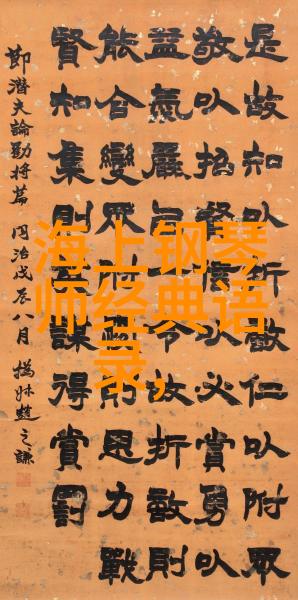 是故知㠯折敵仁㠯附眾
敬㠯招賢信㠯必賞勇㠯
益氣嚴㠯一令故折敵則
能合變眾附愛則思力戰
賢知集則謀得賞罰
節潛夫論勸將篇 同治戊辰八月 撝叔趙之謙
海上钢琴
师经典语
录,